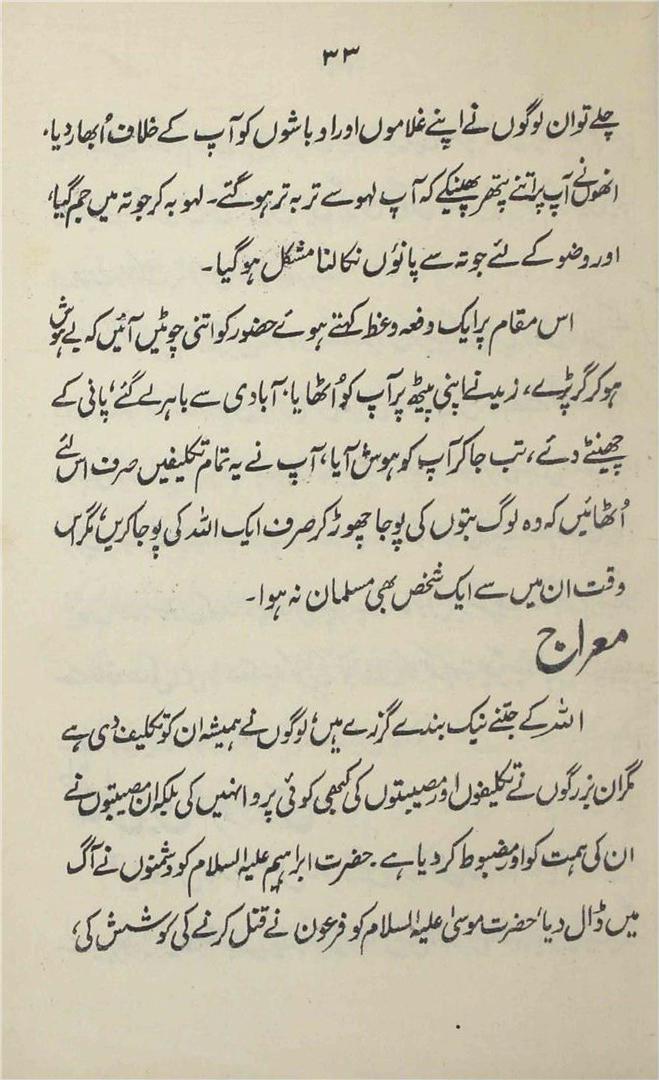 ۳۳
چلے تو ان لوگوں نے اپنے غلاموں اور اوباشوں کو آپ کے خلاف اُبھار دیا،
انھوں نے آپ پر اتنے پتھر پھینکے کہ آپ لہو سے تر بہ تر ہو گئے۔ لہو بہ کر جوتہ میں جم گیا،
اور وضو کے لئے جوتہ سے پانؤں نکالنا مشکل ہو گیا۔
اس مقام پر ایک دفعہ وعظ کہتے ہوئے حضور کو اتنی چوٹیں آئیں کہ بے ہوش
ہو کر گر پڑے، زید نے اپنی پیٹھ پر آپ کو اُٹھایا، آبادی سے باہر لے گئے، پانی کے
چھینٹے دئے، تب جا کر آپ کو ہوش آیا، آپ نے یہ تمام تکلیفیں صرف اس لئے
اُٹھائیں کہ وہ لوگ بتوں کی پوجا چھوڑ کر صرف ایک اللہ کی پوجا کریں، مگر اس
وقت ان میں سے ایک شخص بھی مسلمان نہ ہوا۔
معراج
اللہ کے جتنے نیک بندے گزرے ہیں، لوگوں نے ہمیشہ ان کو تکلیف دی ہے
مگر ان بزرگوں نے تکلیفوں اور مصیبتوں کی کبھی کوئی پروا نہیں کی بلکہ ان مصیبتوں نے
ان کی ہمت کو اور مضبوط کر دیا ہے۔ حضرت ابراہیم علیہ السلام کو دشمنوں نے آگ
میں ڈال دیا، حضرت موسیٰ علیہ السلام کو فرعون نے قتل کرنے کی کوشش کی،